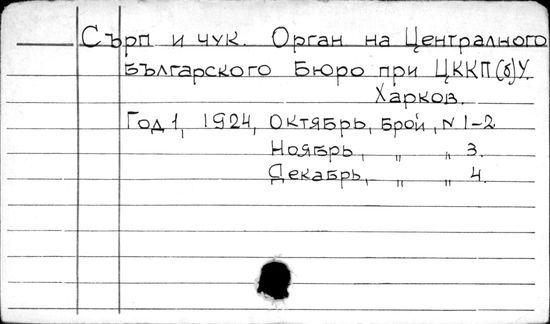 Сърп и чук. Орган на Централного
Българского Бюро при ЦККП(б)У.
Харков.
Год 1, 1924, Октябрь, Брой, № 1-2
Ноябрь, " " 3.
Декабрь, " " 4.